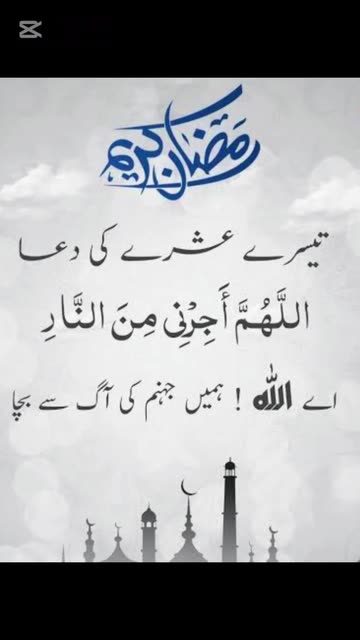 رمضان كريم
تیسرے عشرے کی دعا
اللَّهُمَّ أَجِرْنِي مِنَ النَّارِ
اے اللہ ! ہمیں جہنم کی آگ سے بچا